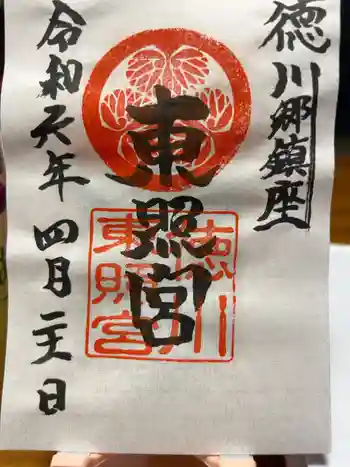 徳川郷鎮座
東照宮
令和六年四月二十一日
徳川
東照宮